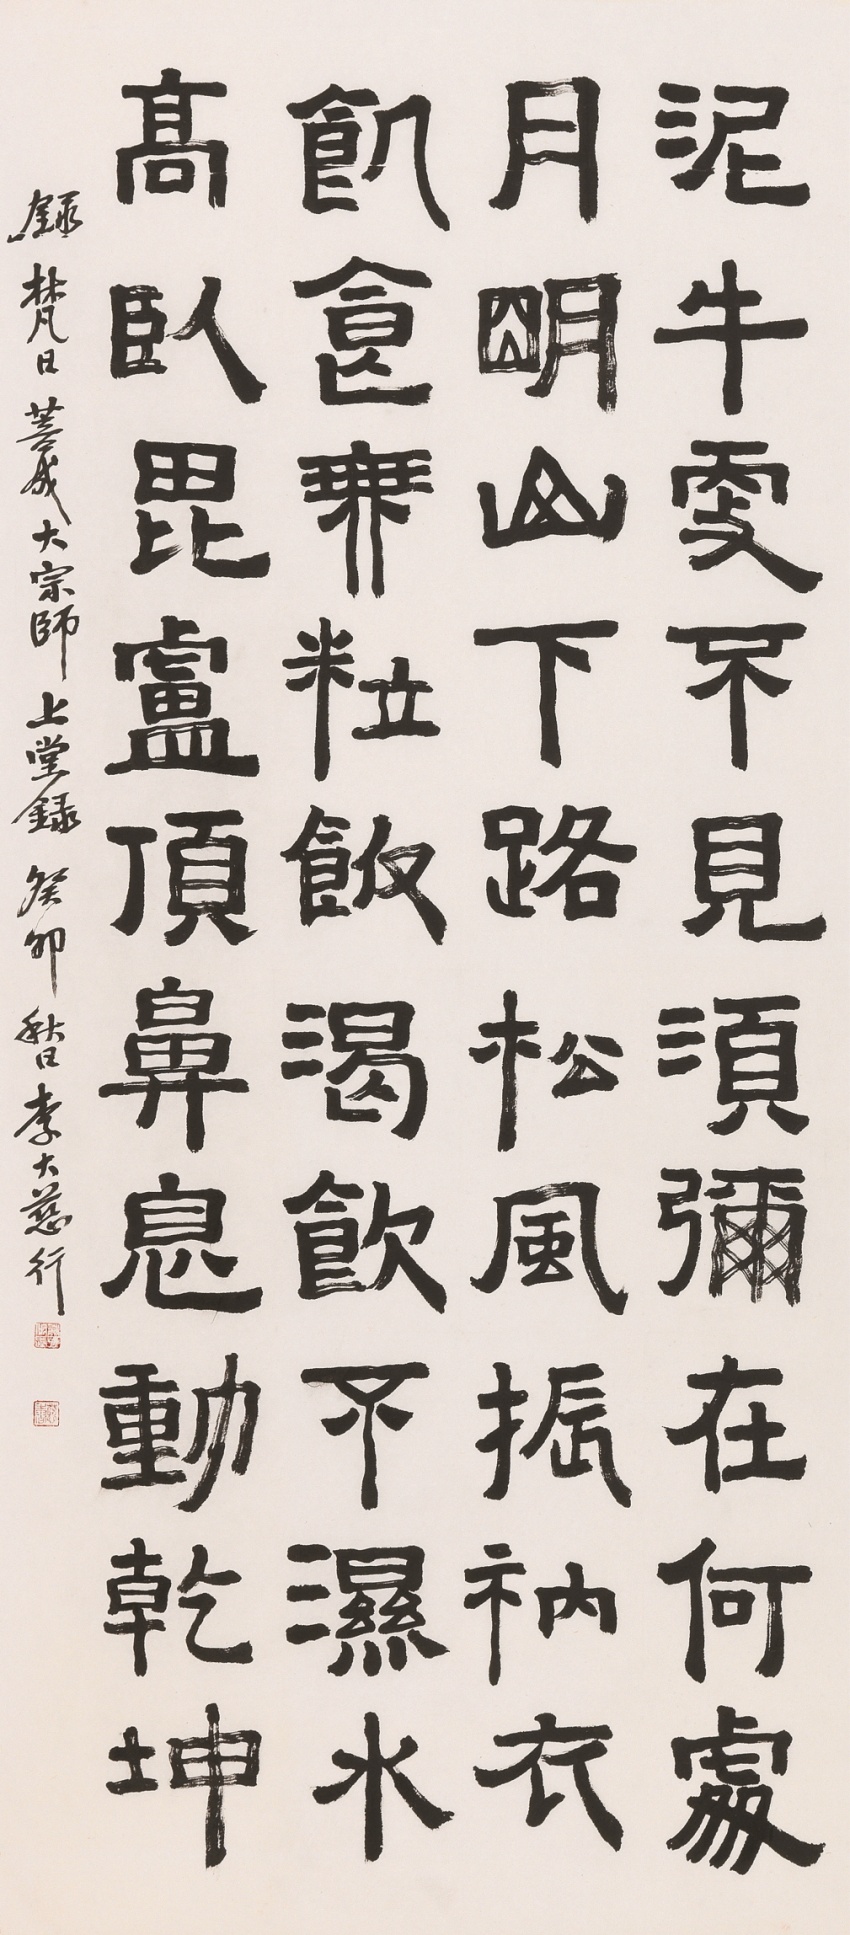 泥牛更不見須彌在何處
月明山下路松風振衲衣
飢食無粒飯渴飲不濕水
高臥毘盧頂鼻息動乾坤
錄梵日菩成大宗師上堂錄 癸卯秋日李大慈行